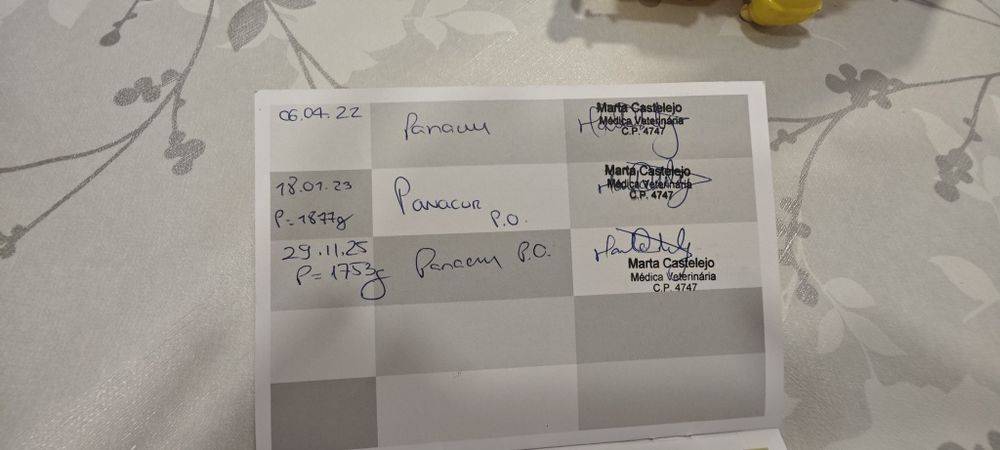 06.04.22 Panacur Marta Castelejo
Médica Veterinária
C.P. 4747
18.01.23 Panacur Marta Castelejo
P.O. Médica Veterinária
P=1877g C.P. 4747
29.11.25 Panacur P.O.
P=1753g Marta Castelejo
Médica Veterinária
C.P. 4747